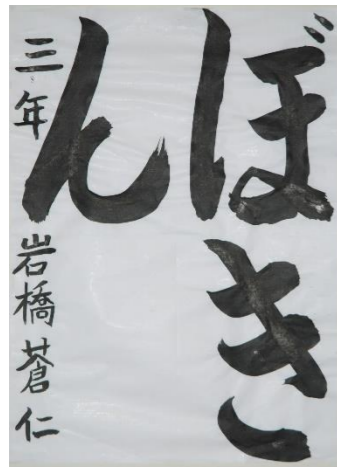 ぼき
ん
三年 岩橋蒼仁